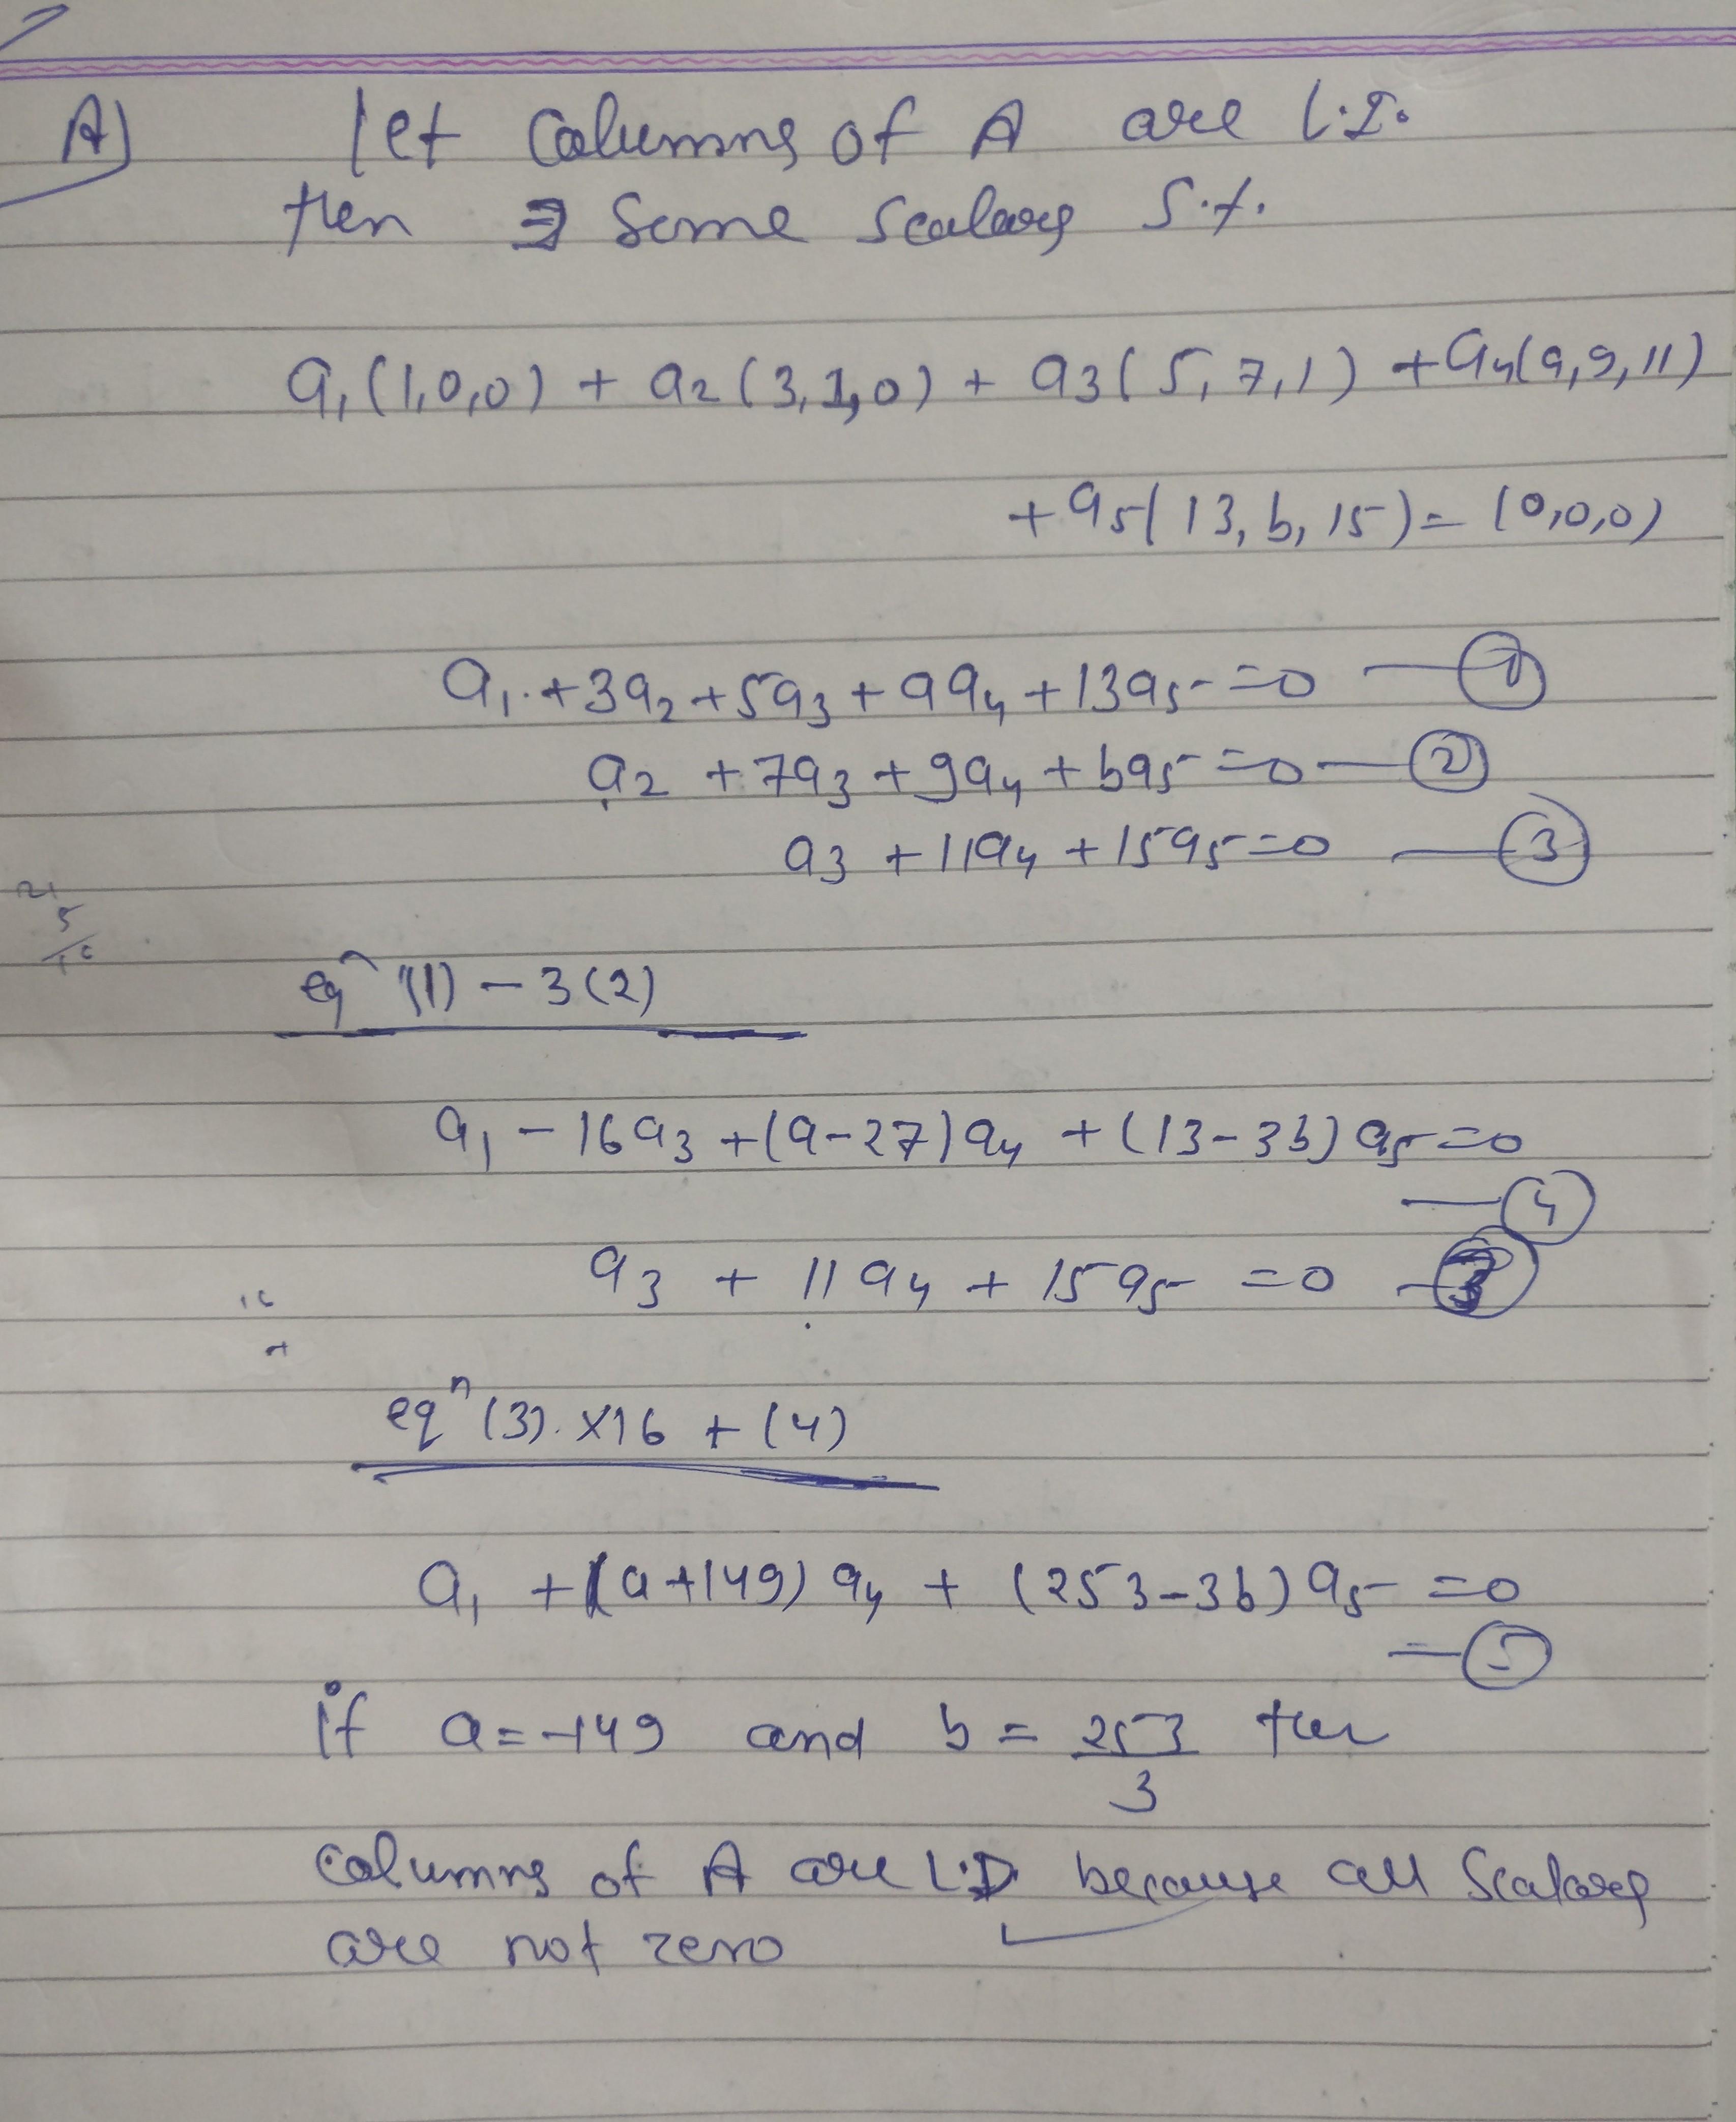 A) let Columns of A are L.I.
then ∃ Some Scalars S.t.
a₁(1,0,0) + a₂(3,1,0) + a₃(5,7,1) + a₄(a,9,11)
+ a₅(13,b,15) = (0,0,0)
a₁ + 3a₂ + 5a₃ + aa₄ + 13a₅ = 0 — ①
a₂ + 7a₃ + 9a₄ + ba₅ = 0 — ②
a₃ + 11a₄ + 15a₅ = 0 — ③
5
eqⁿ (1) – 3(2)
a₁ – 16a₃ + (a–27)a₄ + (13–3b)a₅ = 0
— ④
a₃ + 11a₄ + 15a₅ = 0 — ③
16
eqⁿ (3) ×16 + (4)
a₁ + (a+149)a₄ + (253–3b)a₅ = 0
— ⑤
if a = –149 and b = 253/3 then
Columns of A are L.D. because all Scalars
are not zero